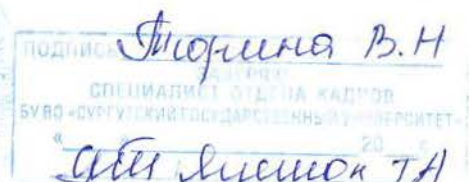 ПОДПИСЬ Тюрина В.Н
ЗАВЕРЯЮ
СПЕЦИАЛИСТ ОТДЕЛА КАДРОВ
БУ ВО «СУРГУТСКИЙ ГОСУДАРСТВЕННЫЙ УНИВЕРСИТЕТ»
« » 20 г.